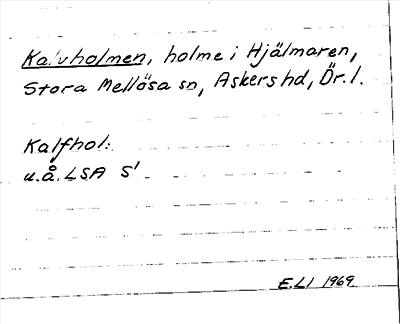 Kalvholmen, holme i Hjälmaren,
Stora Mellösa sn, Askers hd, Ör. l.
Kalfhol:
u.å. LSA S1
E.LI 1969.